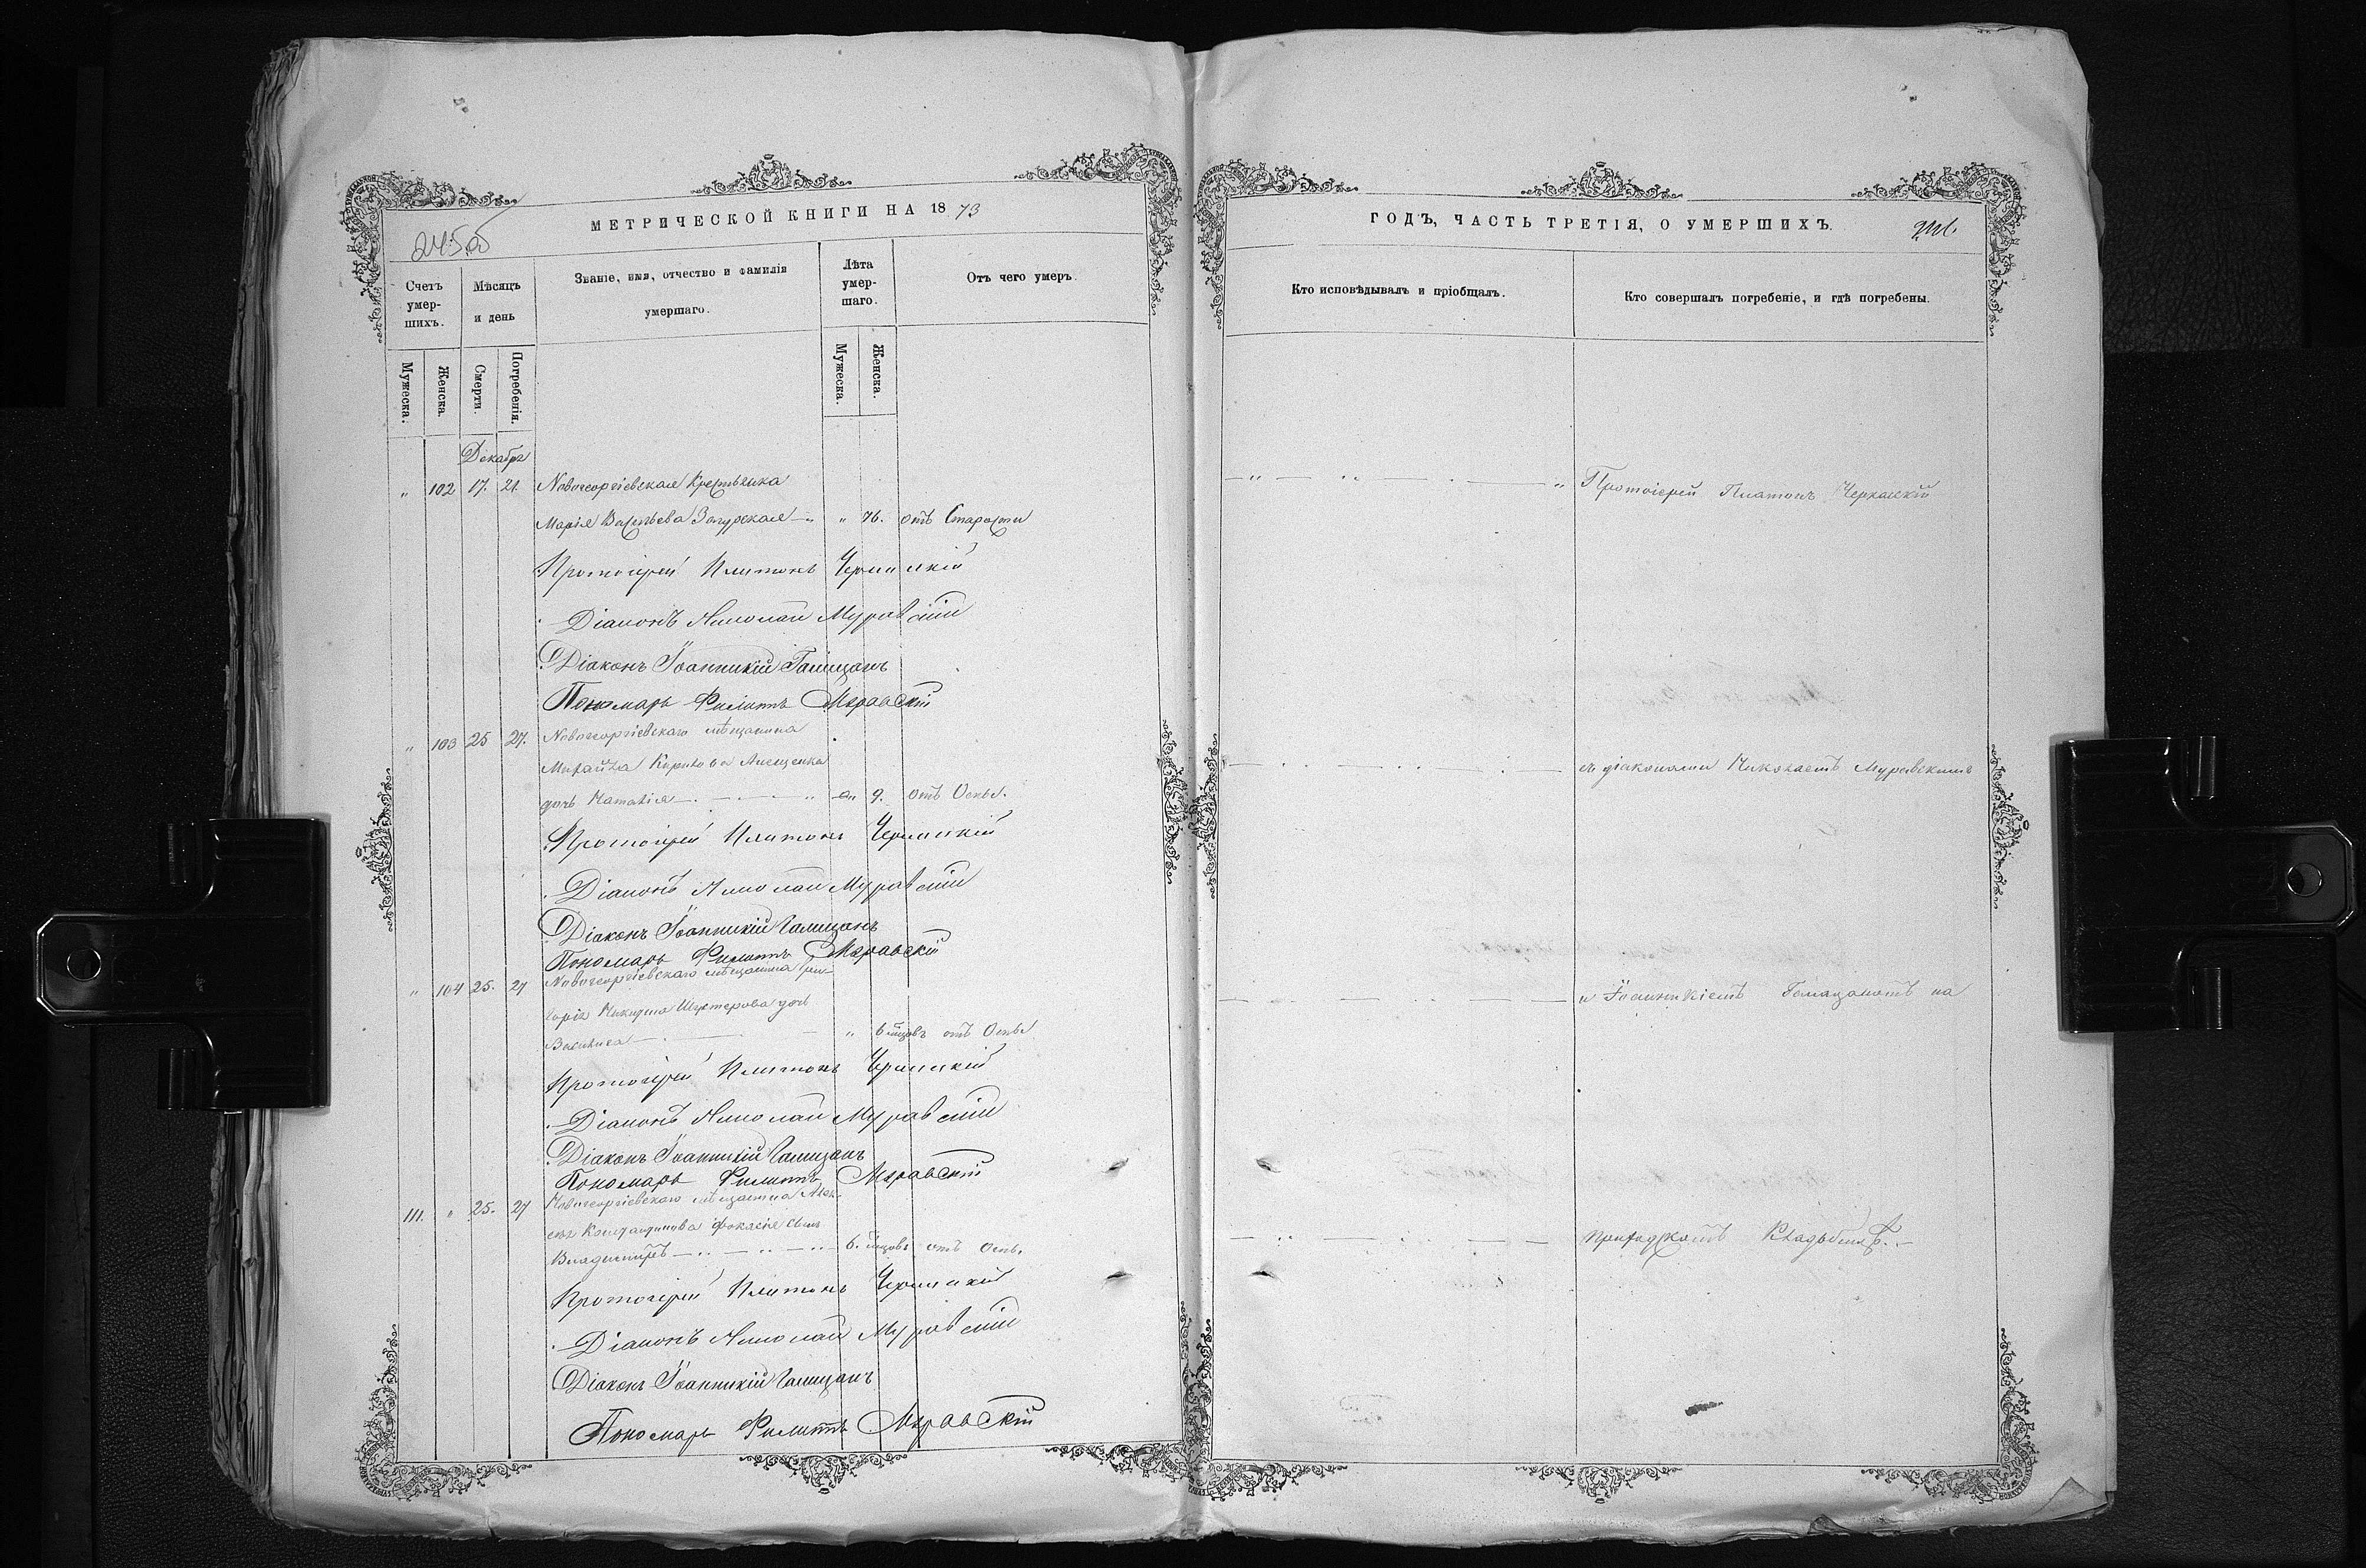 МЕТРИЧЕСКОЙ КНИГИ НА 1873
Счетъ умер-шихъ.
Мѣсяцъ и день
Званіе, имя, отчество и фамилія умершаго.
Лѣта умер-шаго.
Отъ чего умеръ.
Мужеска.
Женска.
Смерти.
Погребенія.
Мужеска.
Женска.
Декабрь
" 102 17. 21. Новогеоргіевская Крестьянка
Марія Васильева Загурская " 76. отъ Старости
Протоіерей Платонъ Черкаскій
Діаконъ Николай Муравскій
Діаконъ Іоанникій Галицанъ
Пономарь Филиппъ Муравскій
" 103 25 27. Новогеоргіевскаго мѣщанина
Михаила Кирилова
дочь Наталія " 9. отъ Оспы.
Протоіерей Платонъ Черкаскій
Діаконъ Николай Муравскій
Діаконъ Іоанникій Галицанъ
Пономарь Филиппъ Муравскій
" 104 25. 27 Новогеоргіевскаго мѣщанина Гри-
горія Никидина Шустерова дочь
Василиса " 6 мцовъ отъ Оспы
Протоіерей Платонъ Черкаскій
Діаконъ Николай Муравскій
Діаконъ Іоанникій Галицанъ
Пономарь Филиппъ Муравскій
111. " 25. 27 Новогеоргіевскаго мѣщанина Алек-
сѣя Констандинова сынъ
Владимиръ 6. мцовъ отъ Оспы.
Протоіерей Платонъ Черкаскій
Діаконъ Николай Муравскій
Діаконъ Іоанникій Галицанъ
Пономарь Филиппъ Муравскій
ГОДЪ, ЧАСТЬ ТРЕТІЯ, О УМЕРШИХЪ.
Кто исповѣдывалъ и пріобщалъ.
Кто совершалъ погребеніе, и гдѣ погребены.
Протоіерей Платонъ Черкаскій
съ діаконами Николаемъ Муравскимъ
и Іоанникіемъ Галицаномъ на
приходскомъ Кладбищѣ.